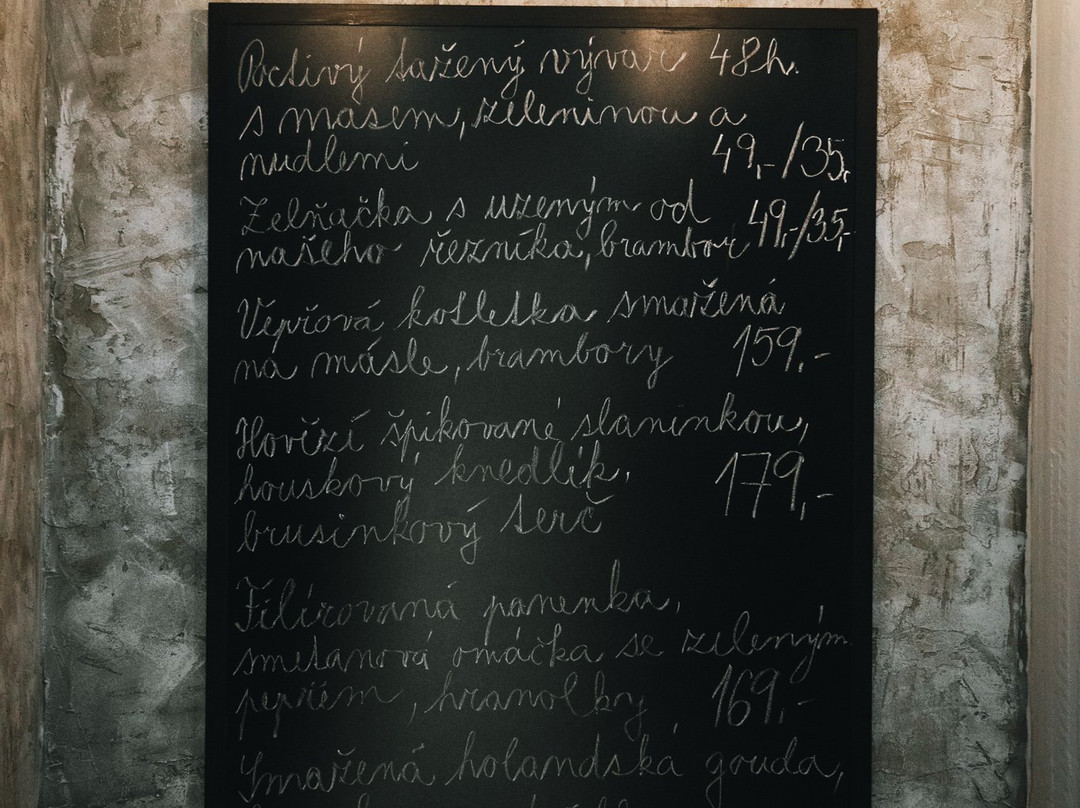 Poctivý tažený vývar 48h.
s masem, zeleninou a
nudlemi 49,-/35,
Zelňačka s uzeným od
našeho řezníka, brambor 49,-/35,-
Vepřová kotletka smažená
na másle, brambory 159,-
Hovězí špikované slaninkou,
houskový knedlík,
brusinkový terč 179,-
Filírovaná panenka,
smetanová omáčka se zeleným
pepřem, hranolky 169,-
Smažená holandská gouda,